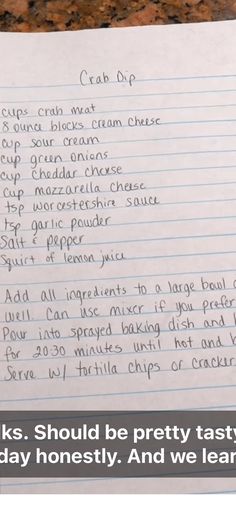 Crab Dip
cups crab meat
8 ounce blocks cream cheese
cup sour cream
cup green onions
cup cheddar cheese
cup mozzarella cheese
tsp worcestershire sauce
tsp garlic powder
Salt & pepper
Squirt of lemon juice
Add all ingredients to a large bowl
well. Can use mixer if you prefer
Pour into sprayed baking dish and
for 20-30 minutes until hot and
Serve w/ tortilla chips or cracker
ks. Should be pretty tasty
day honestly. And we lear